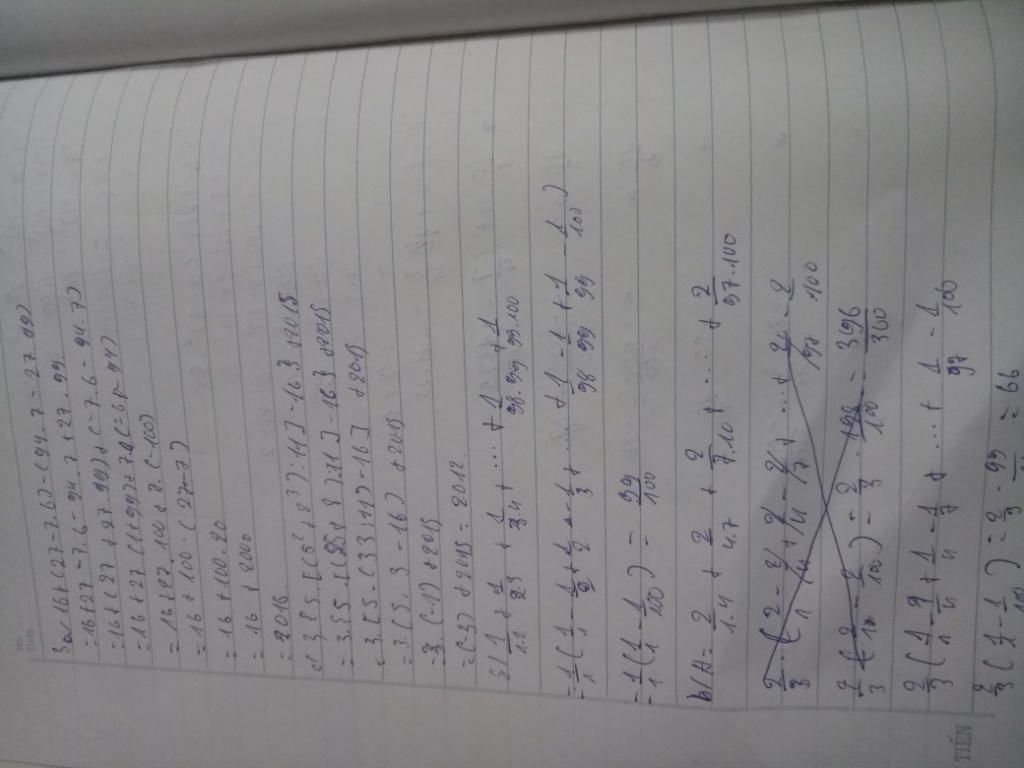 No.
Date
3a, 16+(27-7.6)-(94.7-27.99)
= 16+27-7.6-94.7+27.99
= 16+(27+27.99)+(-7.6-94.7)
= 16+27.(1+99)+7.(-6-94)
= 16+27.100+7.(-100)
= 16+100.(27-7)
= 16+100.20
= 16+2000
= 2016
c, 3{5.[(5²+2³):11]-16}+2015
= 3{5[(25+8):11]-16}+2015
= 3[5.(33:11)-16]+2015
= 3(5.3-16)+2015
= 3.(-1)+2015
= (-3)+2015=2012.
\frac{1}{1.2}+\frac{1}{2.3}+\frac{1}{3.4}+....+\frac{1}{98.99}+\frac{1}{99.100}
=\frac{1}{1}(\frac{1}{1}-\frac{1}{2}+\frac{1}{2}-\frac{1}{3}+....+\frac{1}{98}-\frac{1}{99}+\frac{1}{99}-\frac{1}{100})
=\frac{1}{1}(\frac{1}{1}-\frac{1}{100})=\frac{99}{100}
b, A=\frac{2}{1.4}+\frac{2}{4.7}+\frac{2}{7.10}+....+\frac{2}{97.100}
\frac{2}{3}(\frac{1}{1}-\frac{1}{4}+\frac{1}{4}-\frac{1}{7}+....+\frac{1}{97}-\frac{1}{100}
\frac{2}{3}(\frac{1}{1}-\frac{1}{100})=\frac{2}{3}.99 = 66
TIẾN